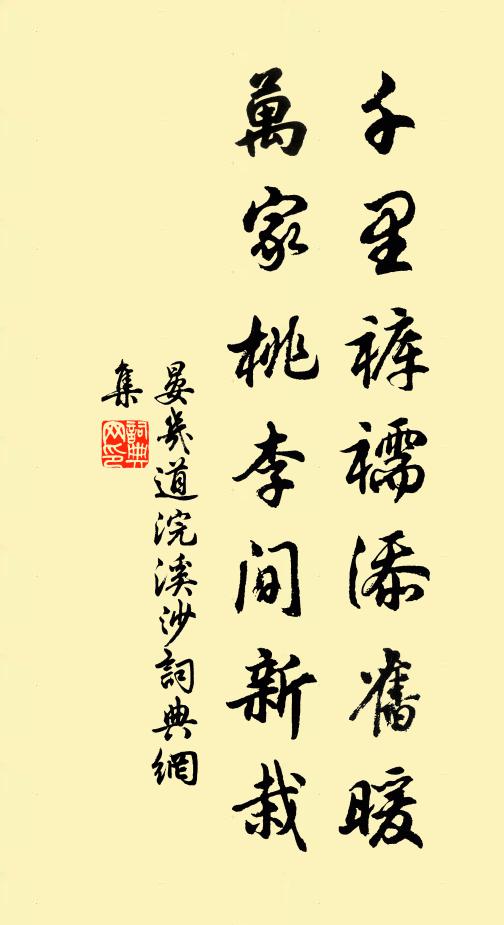 千里裤襦添舊暖
萬家桃李間新栽
晏幾道浣溪沙詞典網
集
詞典網印